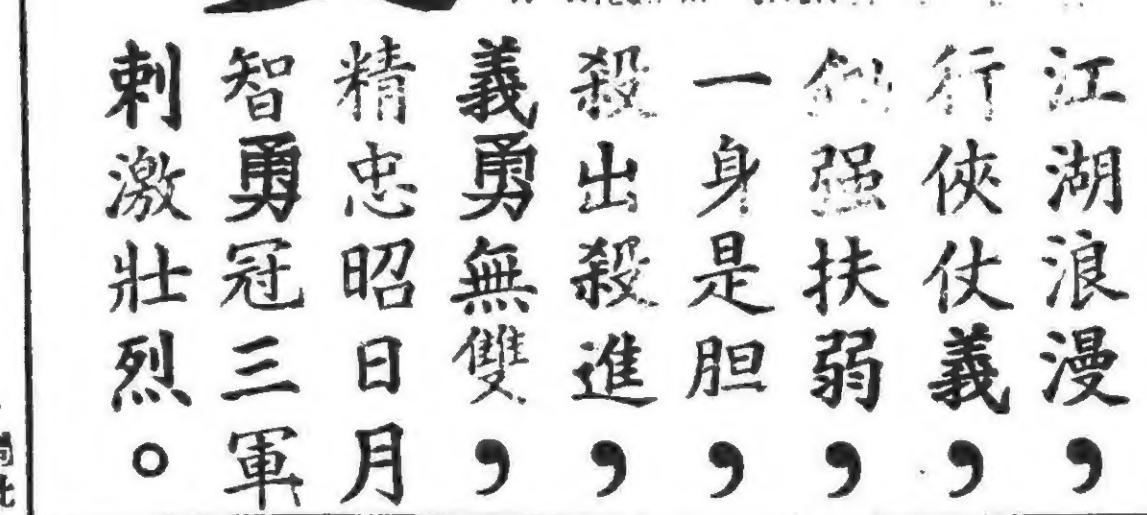 江湖浪漫，
行俠仗義，
鋤强扶弱，
一身是胆，
殺出殺進，
義勇無雙，
精忠昭日月
智勇冠三軍
刺激壯烈。